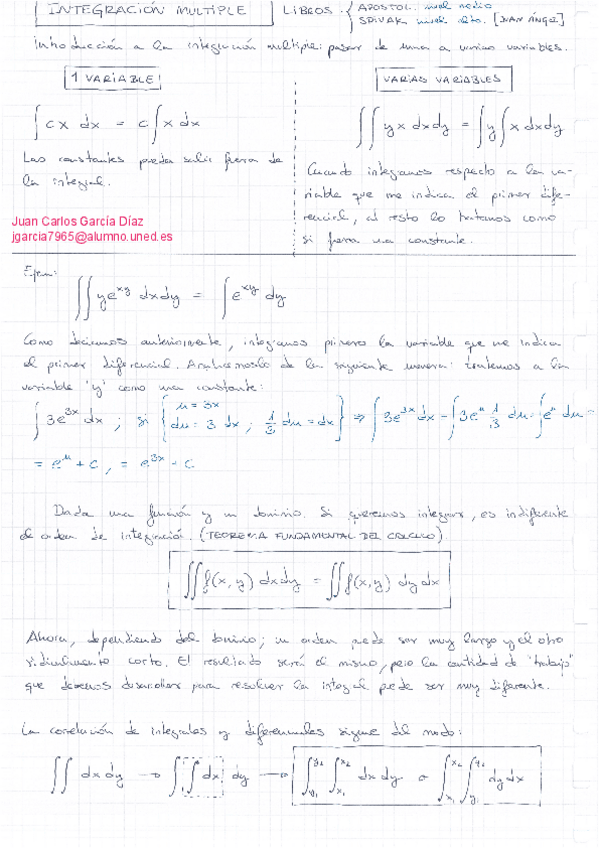 INTEGRACIÓN MULTIPLE
LIBROS: { APOSTOL: nivel medio
SPIVAK: nivel alto. [JUAN ÁNGEL]
Introducción a la integración multiple: pasar de una a varias variables.
1 VARIABLE
∫ cx dx = c ∫ x dx
Las constantes puedan salir fuera de
la integral.
VARIAS VARIABLES
∫∫ yx dxdy = ∫ y ∫ x dxdy
Cuando integramos respecto a la va-
riable que me indica el primer dife-
rencial, al resto lo tratamos como
si fuera una constante.
Juan Carlos García Díaz
jgarcia7965@alumno.uned.es
Ejem:
∫∫ ye^xy dxdy = ∫ e^xy dy
Como decíamos anteriormente, integramos primero la variable que me indica
el primer diferencial. Analicemoslo de la siguiente manera: tratemos a la
variable 'y' como una constante:
∫ 3e^3x dx ; si { u = 3x
du = 3 dx ; 1/3 du = dx } ⇒ ∫ 3e^3x dx = ∫ 3e^u 1/3 du = ∫ e^u du =
= e^u + c, = e^3x + c
Dada una función y un dominio. Si queremos integrar, es indiferente
el orden de integración. (TEOREMA FUNDAMENTAL DEL CALCULO)
∫∫ f(x,y) dxdy = ∫∫ f(x,y) dydx
Ahora, dependiendo del dominio; un orden puede ser muy largo y el otro
ridiculamente corto. El resultado será el mismo, pero la cantidad de "trabajo"
que debemos desarrollar para resolver la integral puede ser muy diferente.
La correlación de integrales y diferenciales sigue del modo:
∫∫ dxdy → ∫ ∫ dx dy → ∫y₁^y₂ ∫x₁^x₂ dxdy o ∫x₁^x₂ ∫y₁^y₂ dydx